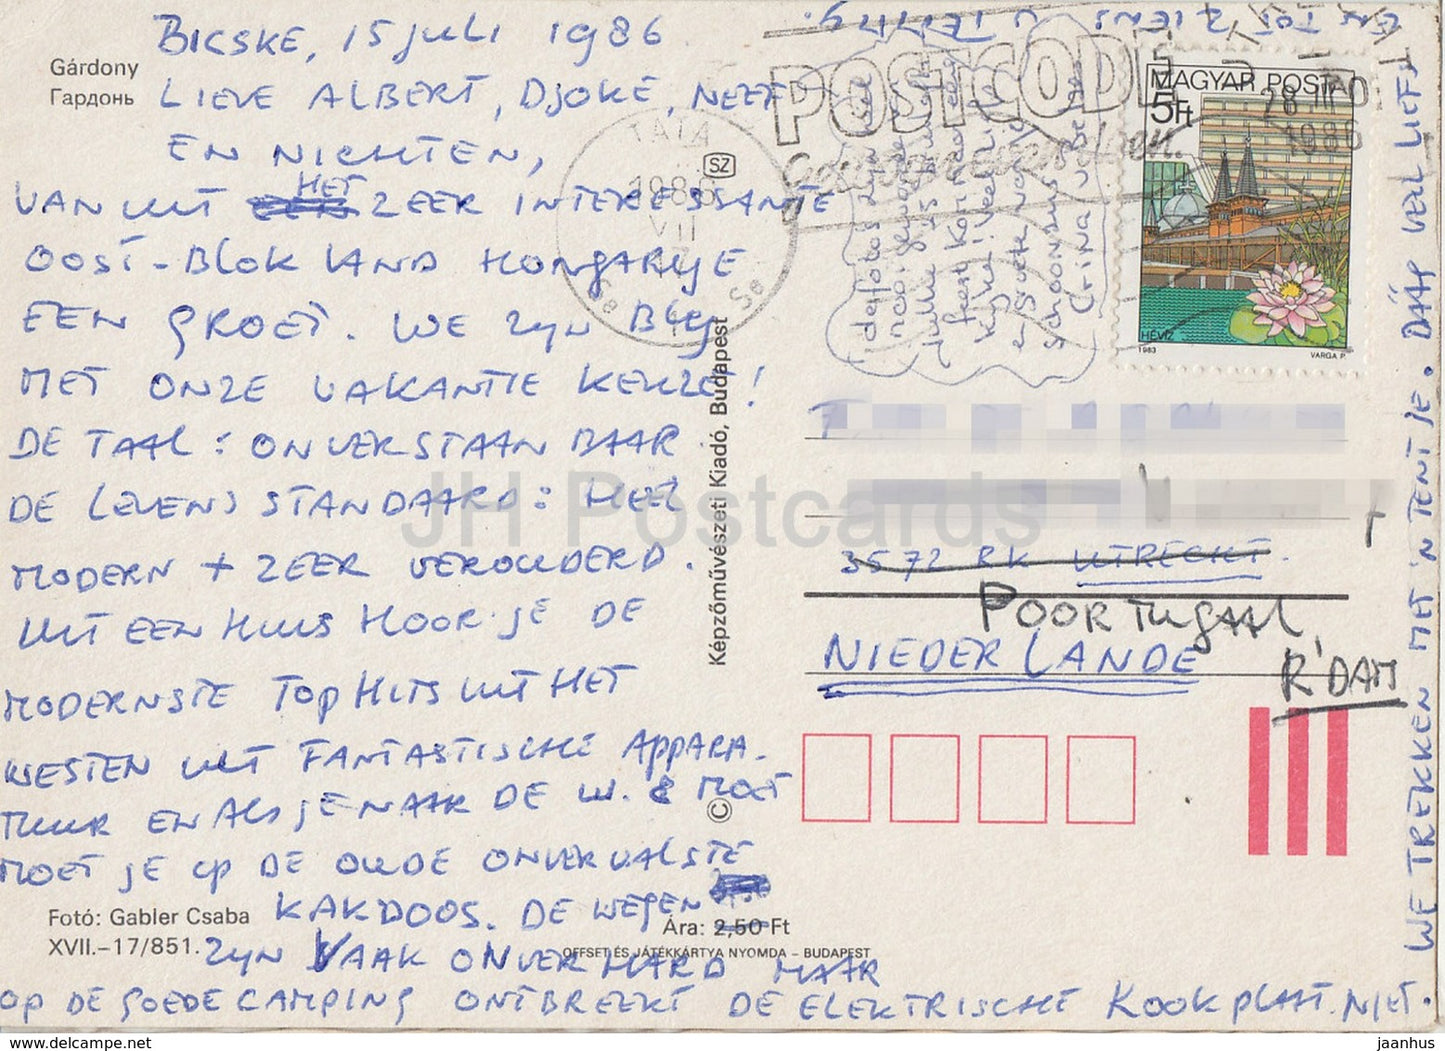 Gárdony
Гардонь
BICSKE, 15 juli 1986
LIEVE ALBERT, DJOKE, NEEF
EN NICHTEN,
VANUIT HET ZEER INTERESSANTE
OOST-BLOK LAND HONGARIJE
EEN GROET. WE ZIJN BLIJ
MET ONZE VAKANTIE KEUZE!
DE TAAL: ONVERSTAANBAAR
DE LEVENSSTANDAARD: HEEL
MODERN + ZEER VEROUDERD.
UIT EEN HUIS HOOR JE DE
MODERNSTE TOPHITS UIT HET
WESTEN UIT FANTASTISCHE APPARA-
TUUR EN ALS JE NAAR DE W.C MOET
MOET JE OP DE OUDE ONVERVALSTE
KAKDOOS. DE WEGEN
ZIJN VAAK ONVERHARD MAAR
OP DE GOEDE CAMPING ONTBREEKT DE ELEKTRISCHE KOOKPLAAT NIET.
WE TREKKEN MET 'N TENTJE. DAAG VEEL LIEFS
EN TOT ZIENS
Foto: Gabler Csaba
XVII.–17/851.
Ára: 2,50 Ft
OFFSET ÉS JÁTÉKKÁRTYA NYOMDA – BUDAPEST
Képzőművészeti Kiadó, Budapest
©
TATA
SZ
1986
VII
POSTCODE
28 VII
1986
MAGYAR POSTA
5Ft
HÉVÍZ
1983
VARGA P.
3572 RK UTRECHT.
POORTUGAAL
R'DAM
NIEDERLANDE
JH Postcards
www.hippostcard.com/store/jaanhus